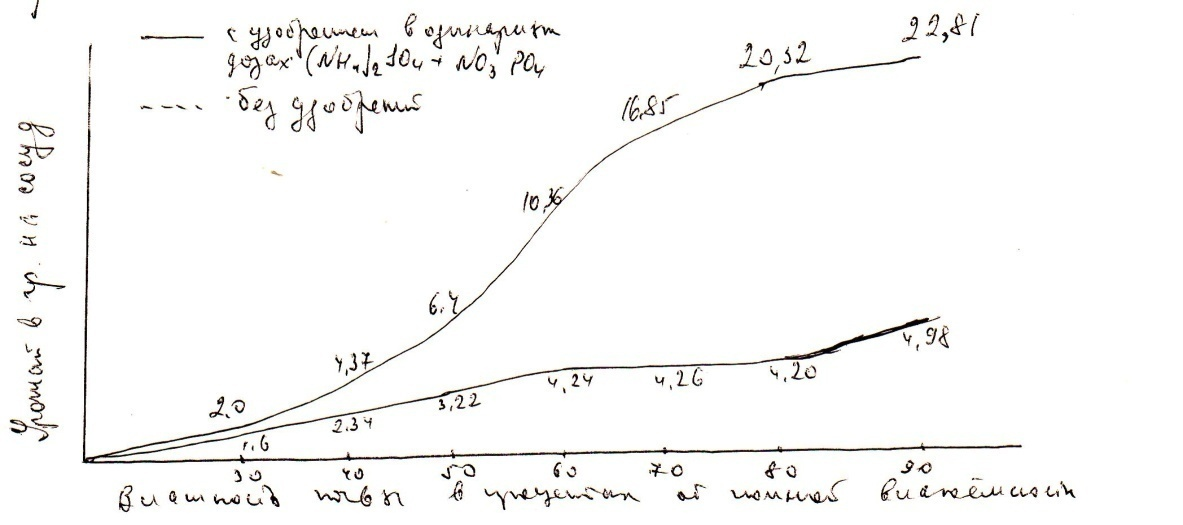 с удобрением в одинарных
дозах (NH₄)₂SO₄ + NO₃ PO₄
без удобрений
Урожай в гр. на сосуд
22,81
20,32
16,85
10,36
6.4
4,37
2,0
1.6
2.34
3,22
4,24
4,26
4,20
4,98
30 40 50 60 70 80 90
Влажность почвы в процентах от полной влагоёмкости